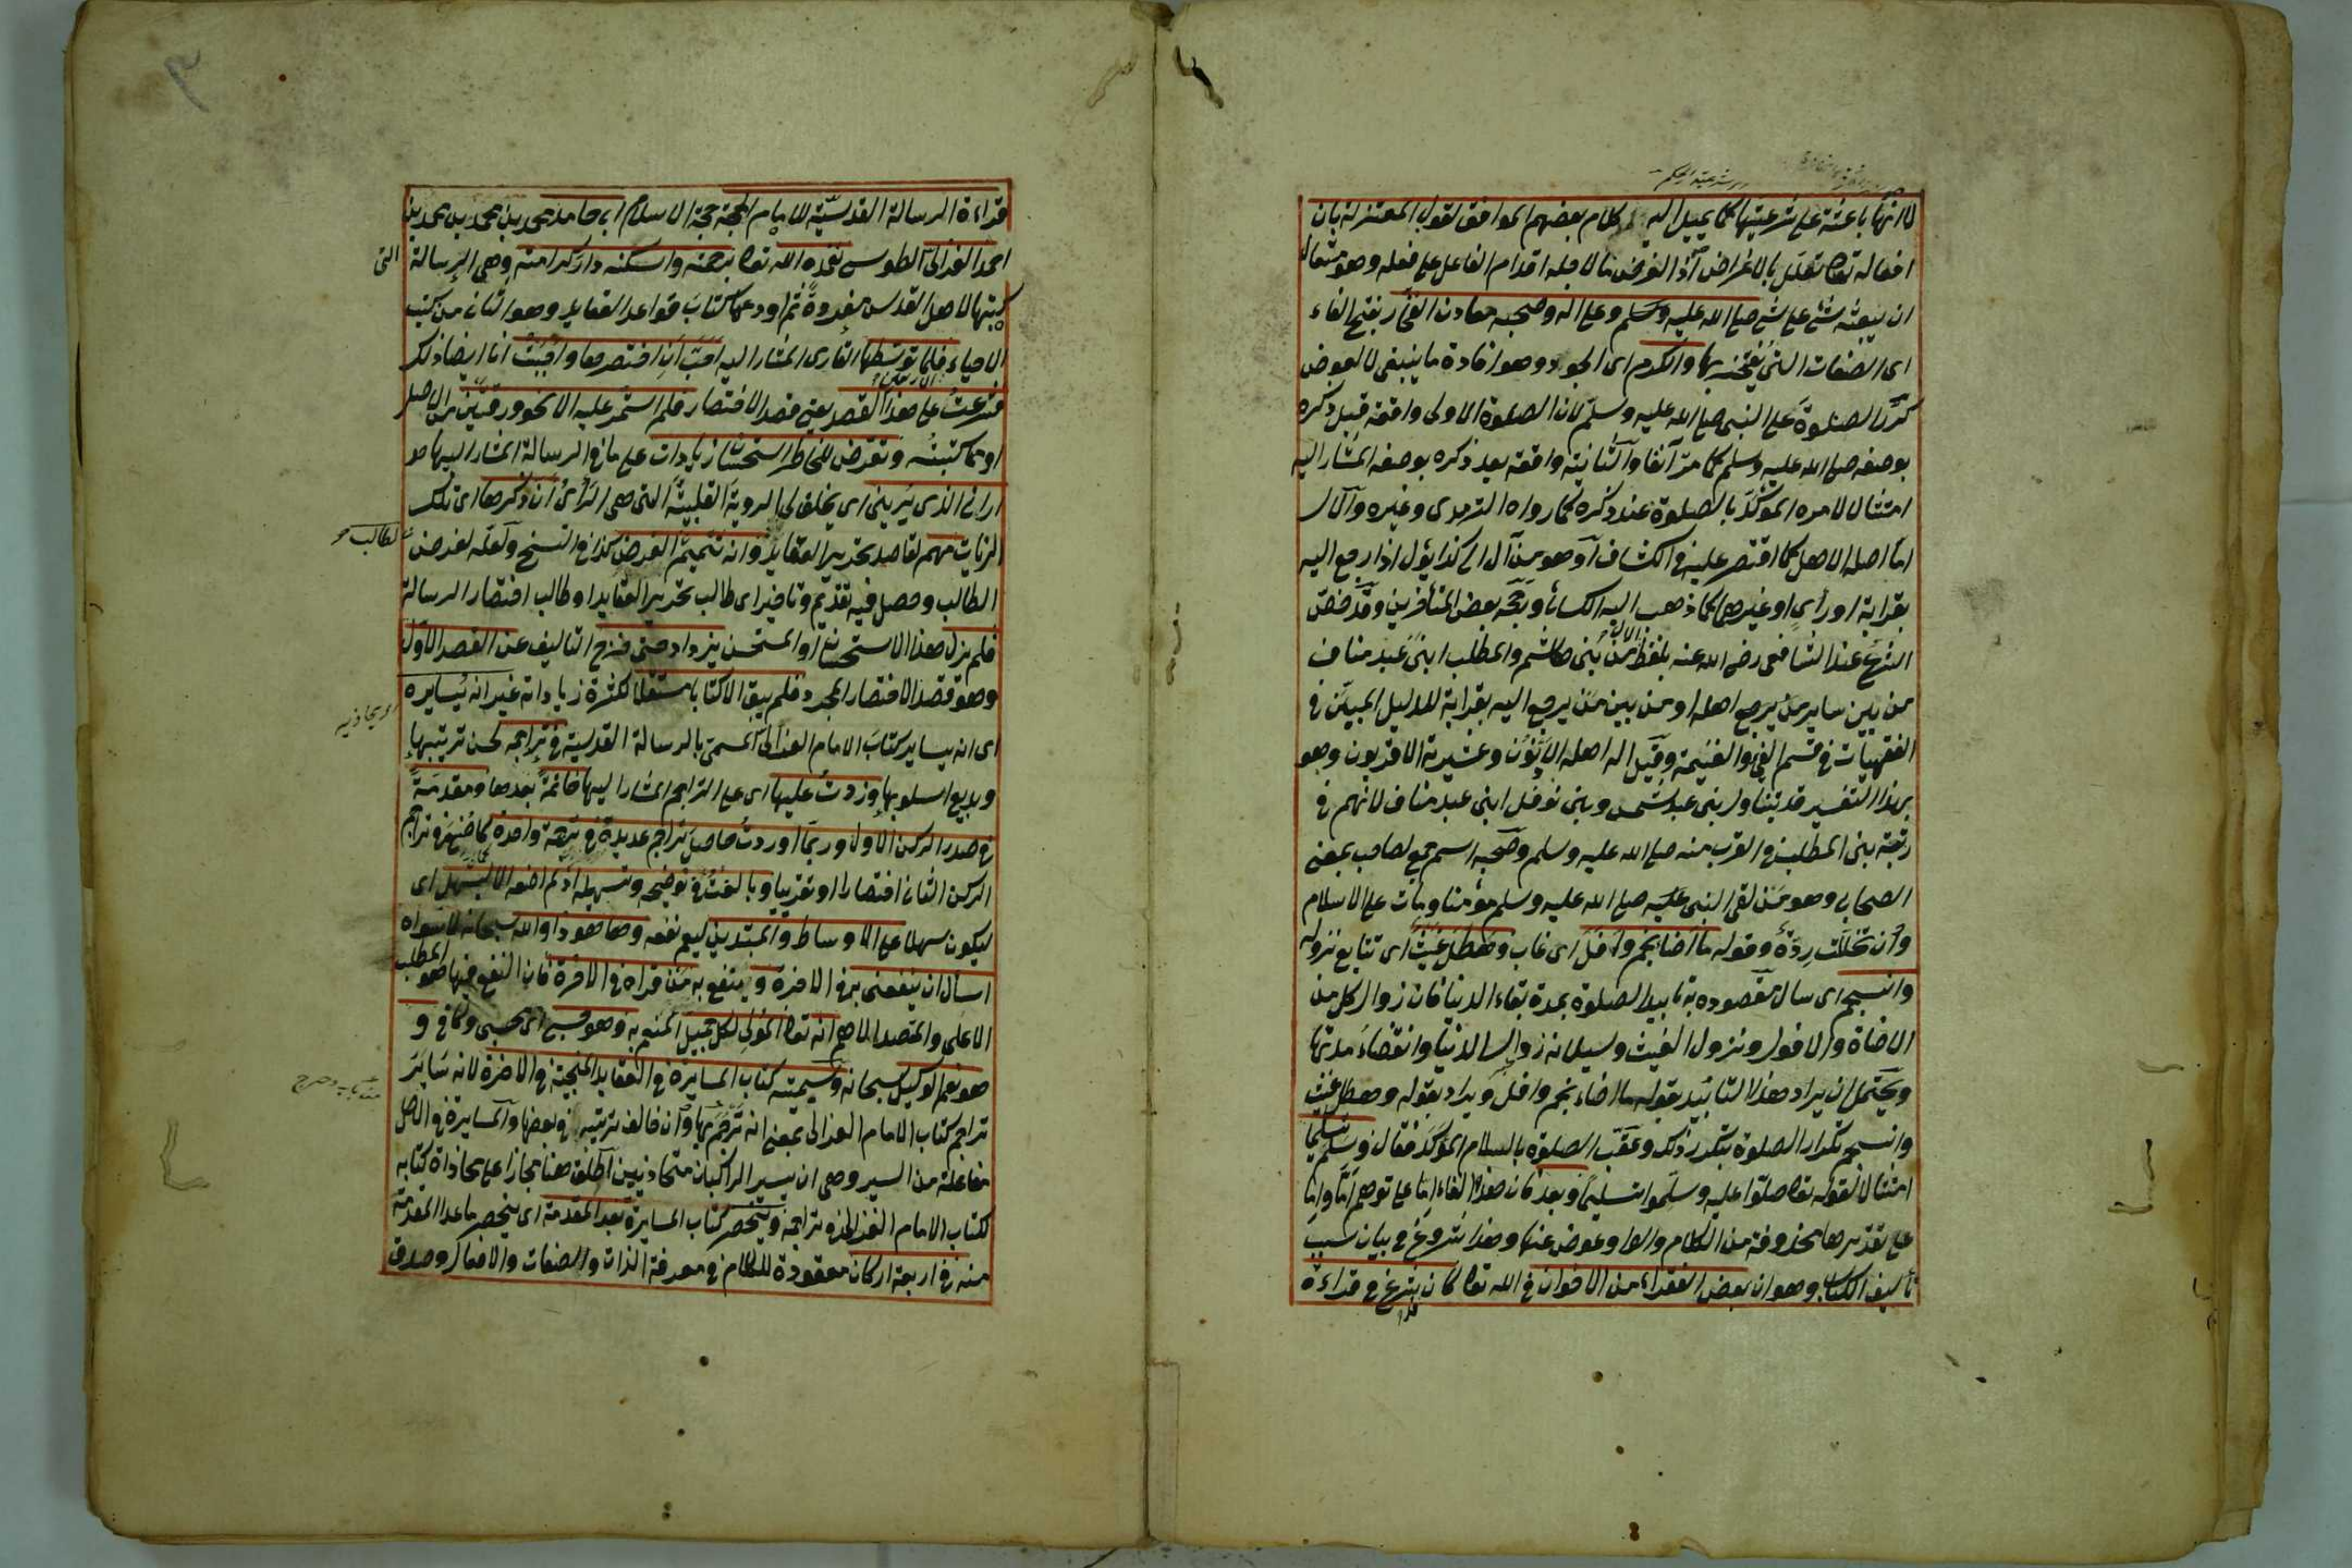 لا انها باعثة على شرعيتها كما يميل اليه كلام بعضهم الموافق لقول المعتزلة بان
افعاله تعالى تعلل بالاغراض اذ الغرض ما لاجله اقدام الفاعل على فعله وهو متعال
ان يبعثه شئ على شئ صلى الله عليه وسلم وعلى اله وصحبه معادن الفخار بفتح الفاء
اى الصفات التى يفتخر بها والكرم اى الجود وهو افادة ما ينبغى لا لعوض
كرر الصلوة على النبى صلى الله عليه وسلم لان الصلوة الاولى واقعة قبل ذكره
بوصفه صلى الله عليه وسلم كما مر آنفا والثانية واقعة بعد ذكره بوصفه المشار اليه
امتثالا لامره المؤكد بالصلوة عند ذكره كما رواه الترمذى وغيره والآل
اما اصله الاهل كما اقتصر عليه فى الكشاف او هو من آل الى كذا يؤل اذا رجع اليه
بقرابة او رأى او غيرهما كما ذهب اليه الكسائى ورجحه بعض المتأخرين وقد خص
الشرع عند الشافعى رضى الله عنه بلفظ الآل من بنى هاشم والمطلب ابنى عبد مناف
من بين ساير من يرجع اهله او من بين من يرجع اليه بقرابة للدليل المبين فى
الفقهيات فى قسم الفئ والغنيمة وقيل اله اهله الادنون وعشيرته الاقربون وهو
بهذا التفسير قد يتناول بنى عبد شمس وبنى نوفل ابنى عبد مناف لانهم فى
رتبة بنى المطلب فى القرب منه صلى الله عليه وسلم وصحبه اسم جمع لصاحب بمعنى
الصحابى وهو من لقى النبى عليه صلى الله عليه وسلم مؤمنا ومات على الاسلام
وان تخللت ردة وقوله ما اضا نجم وافل اى غاب وهطل غيث اى تتابع نزوله
وانسجم اى سال مقصوده به تابيد الصلوة بمدة بقاء الدنيا فان زوال كل من
الاضاة والافول ونزول الغيث وسيلانه زوال الدنيا وانقضاء مدتها
ويحتمل ان يراد هذا التابيد بقوله ما اضاء نجم وافل ويراد بقوله وهطل غيث
وانسجم تكرار الصلوة بتكرر ذلك وعقب الصلوة بالسلام المؤكد فقال وسلم تسليما
امتثالا لقوله تعالى صلوا عليه وسلموا تسليما وبعد فان هذا الفاء اما على توهم اما واما
على تقديرها محذوفة من الكلام والواو عوض عنها وهذا شروع فى بيان سبب
تأليف الكتاب وهو ان بعض الفقراء من الاخوان فى الله تعالى كان شرع فى قراءة
قراءة الرسالة القدسية للامام الحجة حجة الاسلام ابى حامد محمد بن محمد بن محمد بن
احمد الغزالى الطوسى تغمده الله تعالى برحمته واسكنه دار كرامته وهى الرسالة التى
كتبها لاهل القدس مفردة ثم اودعها كتاب قواعد العقايد وهو الثانى من كتب
الاحياء فلما توسطها القارى المشار اليه احب ان اختصرها واحببت انا ايضا ذلك
فشرعت على هذا القصد يعنى قصد الاختصار فلم استمر عليه الا نحو ورقتين من الاصل
او مما كتبته وتعرض للخاطر استحسان زيادات على ما فى الرسالة المشار اليها هو
ارانى الذى يرينى اى يخلق لى الروية القلبية التى هى الرأى ان ذكرها اى تلك
الزيادات مهم لقاصد تحرير العقايد وانه تتميم الغرض كذا فى النسخ ولعله لغرض
لطالب
الطالب وحصل فيه تقديم وتاخير اى طالب تحرير العقايد او طالب اختصار الرسالة
فلم يزل هذا الاستحسان او المستحسن يزداد حتى خرج التاليف عن القصد الاول
وهو قصد الاختصار المجرد فلم يبق الا كتابا مستقلا لكثرة زياداته غير انه يسايره
اى انه يساير كتاب الامام الغزالى المسمى بالرسالة القدسية فى تراجمه لحسن ترتيبها
وبديع اسلوبها وزدت عليها اى على التراجم المشار اليها خاتمة بعدها ومقدمة
فى صدر الركن الاول وربما اوردت حاصل تراجم عديدة فى ترجمة واحدة كما صنع فى تراجم
الركن الثانى اختصارا او تقريبا وبالغت فى توضيحه وتسهيله اذ لم اضعه الا ليسهل اى
ليكون سهلا على الاوساط والمبتدين ليعم نفعه وها هو ذا والله سبحانه لا سواه
اسأل ان ينفعنى به فى الاخرة وينتفع به من قراه فى الاخرة فان النفع فيها هو المطلب
الاعلى والمقصد الاهم انه تعالى المولى لكل جميل المنعم به وهو حسبى اى محسبى وكافى و
هو نعم الوكيل سبحانه وسميته كتاب المسايرة فى العقايد المنجية فى الاخرة لانه ساير
تراجم كتاب الامام الغزالى بمعنى انه ترجم بها وان خالف ترتيبه فى بعضها والمسايرة فى الاصل
مفاعلة من السير وهى ان يسير الراكبان متحاذيين اطلق هنا مجازا على محاذاة كتابه
لكتاب الامام الغزالى فى تراجمه وينحصر كتاب المسايرة بعد المقدمة اى ينحصر ما عدا المقدمة
منه فى اربعة اركان معقودة للكلام فى معرفة الذات والصفات والافعال وصدق